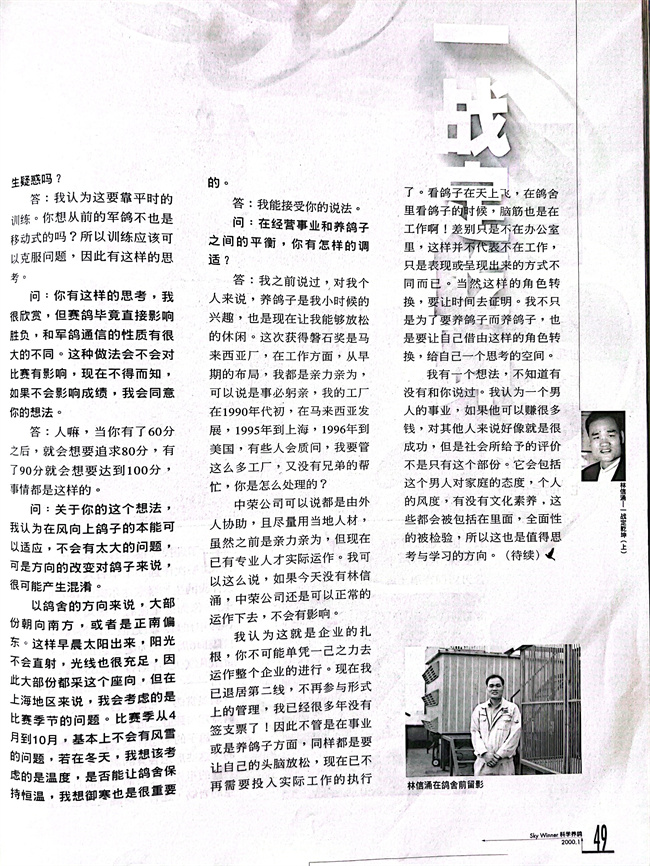 一战定
生疑惑吗？
答：我认为这要靠平时的
训练。你想从前的军鸽不也是
移动式的吗？所以训练应该可
以克服问题，因此有这样的思
考。
问：你有这样的思考，我
很欣赏，但赛鸽毕竟直接影响
胜负，和军鸽通信的性质有很
大的不同。这种做法会不会对
比赛有影响，现在不得而知，
如果不会影响成绩，我会同意
你的想法。
答：人嘛，当你有了60分
之后，就会想要追求80分，有
了90分就会想要达到100分，
事情都是这样的。
问：关于你的这个想法，
我认为在风向上鸽子的本能可
以适应，不会有太大的问题，
可是方向的改变对鸽子来说，
很可能产生混淆。
以鸽舍的方向来说，大部
份朝向南方，或者是正南偏
东。这样早晨太阳出来，阳光
不会直射，光线也很充足，因
此大部份都采这个座向，但在
上海地区来说，我会考虑的是
比赛季节的问题。比赛季从4
月到10月，基本上不会有风雪
的问题，若在冬天，我想该考
虑的是温度，是否能让鸽舍保
持恒温，我想御寒也是很重要
的。
答：我能接受你的说法。
问：在经营事业和养鸽子
之间的平衡，你有怎样的调
适？
答：我之前说过，对我个
人来说，养鸽子是我小时候的
兴趣，也是现在让我能够放松
的休闲。这次获得磐石奖是马
来西亚厂，在工作方面，从早
期的布局，我都是亲力亲为，
可以说是事必躬亲，我的工厂
在1990年代初，在马来西亚发
展，1995年到上海，1996年到
美国，有些人会质问，我要管
这么多工厂，又没有兄弟的帮
忙，你是怎么处理的？
中荣公司可以说都是由外
人协助，且尽量用当地人材，
虽然之前是亲力亲为，但现在
已有专业人才实际运作。我可
以这么说，如果今天没有林信
涌，中荣公司还是可以正常的
运作下去，不会有影响。
我认为这就是企业的扎
根，你不可能单凭一己之力去
运作整个企业的进行。现在我
已退居第二线，不再参与形式
上的管理，我已经很多年没有
签支票了！因此不管是在事业
或是养鸽子方面，同样都是要
让自己的头脑放松，现在已不
再需要投入实际工作的执行
了。看鸽子在天上飞，在鸽舍
里看鸽子的时候，脑筋也是在
工作啊！差别只是不在办公室
里，这样并不代表不在工作，
只是表现或呈现出来的方式不
同而已。当然这样的角色转
换，要让时间去证明。我不只
是为了要养鸽子而养鸽子，也
是要让自己借由这样的角色转
换，给自己一个思考的空间。
我有一个想法，不知道有
没有和你说过。我认为一个男
人的事业，如果他可以赚很多
钱，对其他人来说好像就是很
成功，但是社会所给予的评价
不是只有这个部份。它会包括
这个男人对家庭的态度，个人
的风度，有没有文化素养，这
些都会被包括在里面，全面性
的被检验，所以这也是值得思
考与学习的方向。（待续）
林信涌—一战定乾坤（上）
林信涌在鸽舍前留影
Sky Winner 科学养鸽
2000.1
49